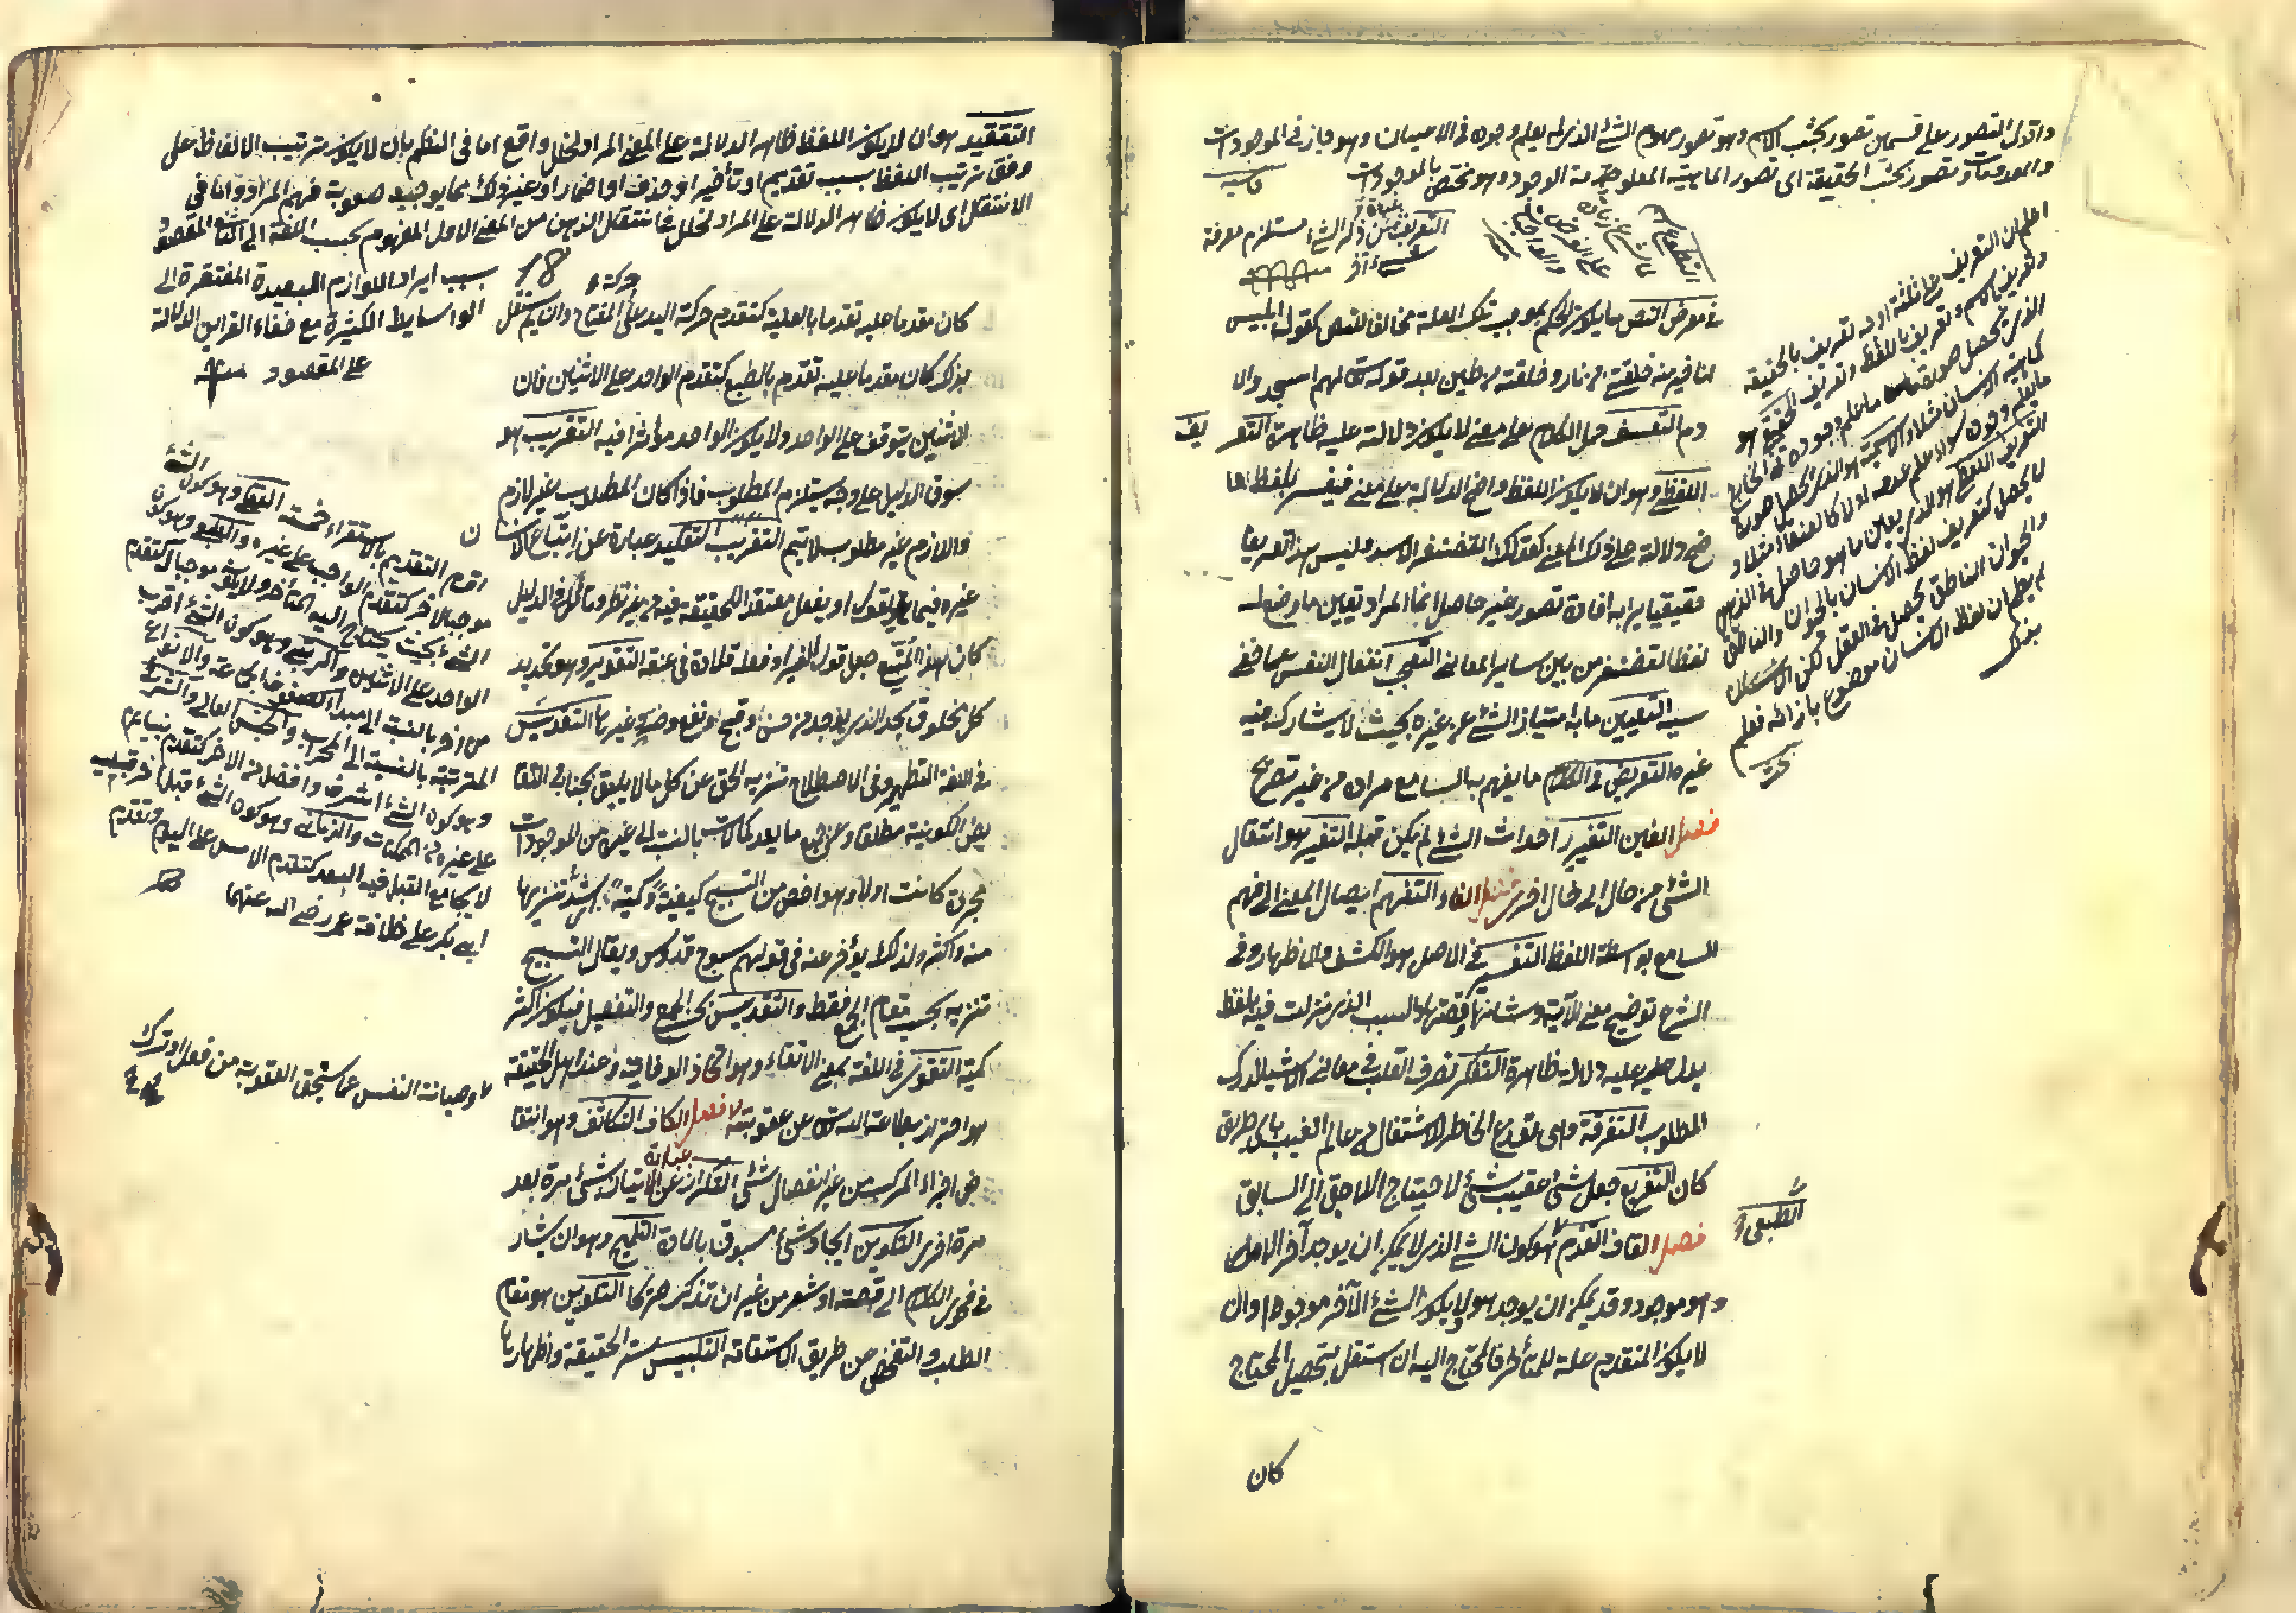 واقول التصور على قسمين تصور بحسب الاسم وهو تصور مفهوم الشئ الذى لم يعلم وجوده فى الاعيان وهو جاز فى الموجودات
والمعدومات وتصور بحسب الحقيقة اى تصور الماهية المعلومة الوجود وهو مختص بالموجودات
التعريف عبارة عن ذكر الشئ مستلزم معرفة
شئ آخر
فى معرض النص ما يكون الحكم بموجب تلك العلة مخالفا للنص كقول ابليس
انا خير منه خلقتنى من نار وخلقته من طين بعد قوله تعالى لهم اسجدوا لا
دم التعسف حمل الكلام على معنى لا يكون دلالته عليه ظاهرة التعر
يف
اللفظى وهو ان لا يكون اللفظ واضح الدلالة على معنى فيفسر بلفظ اوا
ضح دلالة على ذلك المعنى كقولك الغضنفر الاسد وليس هذا تعريفا
حقيقيا يراد به افادة تصور غير حاصل انما المراد تعيين ما وضع له
لفظ الغضنفر من بين سائر المعانى التعجب انفعال النفس عما خفى
سببه التعيين ما به امتياز الشئ عن غيره بحيث لا يشاركه فيه
غيره التعريض فى الكلام ما يفهم به السامع مراده من غير تصريح
فصل الغين التغيير احداث الشئ لم يكن قبله التغير هو انتقال
الشئ من حال الى حال اخرى فصل الفاء التفهيم ايصال المعنى الى فهم
السامع بواسطة اللفظ التفسير فى الاصل هو الكشف والاظهار وفى
الشرع توضيح معنى الآية وشانها وقصتها والسبب الذى نزلت فيه بلفظ
يدل عليه دلالة ظاهرة التفكر تصرف القلب فى معانى الاشياء لدرك
المطلوب التفرقة وهى توزع الخاطر للاشتغال من عالم الغيب باى طريق
كان التفريع جعل شئ عقيب شئ لاحتياج اللاحق الى السابق
فصل القاف التقدم الطبيعى هو كون الشئ الذى لا يمكن ان يوجد آخر الا وهو
وهو موجود وقد يمكن ان يوجد هو ولا يكون الشئ الآخر موجودا وان
لا يكون المتقدم علة للمتأخر فالمحتاج اليه ان استقل بتحصيل المحتاج
كان
اعلم ان التعريف على ثلثة اوجه تعريف بالحقيقة
وتعريف بالاسم وتعريف باللفظ والتعريف الحقيقى هو
الذى تحصل صورة ما علم وجوده فى الخارج
كماهية الانسان مثلا والاسمية هو الذى يحصل صورة
ما يعلم وجوده سواء علم عدمه اولا كالعنقاء مثلا و
التعريف اللفظى هو الذى يعين ما هو حاصل فى الذهن
لا يحصل كتعريف لفظ الانسان بالحيوان والناطق
والحيوان الناطق يحصل فى العقل لكن الانسان
لم يعلم ان لفظ الانسان موضوع بازائه فعلم
بذلك
التعقيد هو ان لا يكون اللفظ ظاهر الدلالة على المعنى المراد لخلل واقع اما فى النظم بان لا يكون ترتيب الالفاظ على
وفق ترتيب اللفظ بسبب تقديم او تأخير او حذف او اضمار او غير ذلك مما يوجب صعوبة فهم المراد واما فى
الانتقال اى لا يكون ظاهر الدلالة على المراد لخلل فى انتقال الذهن من المعنى الاول المفهوم بحسب اللغة الى الثانى المقصود
بسبب ايراد اللوازم البعيدة المفتقرة الى
الوسايط الكثيرة مع خفاء القراين الدالة
على المقصود
18
كان مقدما عليه تقدما بالعلية كتقدم حركة اليد على حركة المفتاح وان لم يستقل
بذلك كان مقدما عليه تقدم بالطبع كتقدم الواحد على الاثنين فان
الاثنين يتوقف على الواحد ولا يكون الواحد مؤثرا فيه التقريب هو
سوق الدليل على وجه يستلزم المطلوب فاذا كان المطلوب غير لازم
واللازم غير مطلوب لا يتم التقريب التقليد عبارة عن اتباع الانسان
غيره فيما يقول او يفعل معتقد الحقيقة فيه من غير نظر وتأمل فى الدليل
كان هذا المتبع جعل قول الغير او فعله قلادة فى عنقه التقدير هو تحديد
كل مخلوق بحده الذى يوجد من حسن او قبح او نفع وضر وغيرها التقديس
فى اللغة التطهير وفى الاصطلاح تنزيه الحق عن كل ما لا يليق بجنابه والنقا
يص الكونية مطلقا وعن جميع ما يعد كمالات بالنسبة الى غيره من الموجودات
مجردة كانت اولا وهو اخص من التسبيح كيفية وكمية اى اشد تنزيها
منه واكثر ولذلك يؤخر عنه فى قولهم سبوح قدوس ويقال التسبيح
تنزيه بحسب مقام الجمع فقط والتقديس بحسب الجمع والتفصيل فيكون اكثر
كمية التقوى فى اللغة بمعنى الاتقاء وهو اتخاذ الوقاية وعند اهل الحقيقة
هو احتراز بطاعة الله تعالى عن عقوبته فصل الكاف التكاثف وهو انتقا
ض اجزاء المركب من غير انفصال شئ التكرار عبارة عن الاتيان بشئ مرة بعد
مرة اخرى التكوين ايجاد شئ مسبوق بالمادة التلميح وهو ان يشار
فى فحوى الكلام الى قصة او شعر من غير ان تذكر صريحا التلوين هو مقام
الطلب والتفحص عن طريق الاستقامة التلبيس ستر الحقيقة واظهارها
اقسام التقديم بالاستقراء خمسة العقلى وهو كون الشئ
موجبا لآخر كتقدم الواجب على غيره والطبعى وهو كون
الشئ بحيث يحتاج اليه المتأخر ولا يكون موجبا كتقدم
الواحد على الاثنين والرتبى وهو كون الشئ اقرب
من آخر بالنسبة الى مبدأ كصفوف الجماعة والانواع
المترتبة بالنسبة الى المحراب والجنس العالى والشرفى
وهو كون الشئ اشرف وافضل من الآخر كتقدم نبينا عم
على غيره من الممكنات والزمانى وهو كون الشئ قبل آخر قبلية
لا يجامع القبل فيه البعد كتقدم الامس على اليوم وتقدم
ابى بكر على خلافة عمر رضى الله عنهما
وصيانة النفس عما يستحق العقوبة من فعل او ترك